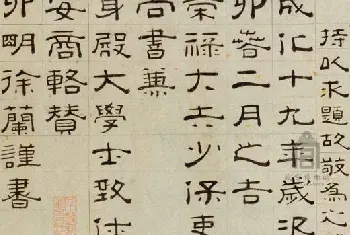 持以求題故敬為之
成化十九年歲次
卯春二月之吉
榮祿大夫少保吏
尚書兼
身殿大學士致仕
安商輅贊
四明徐蘭謹書